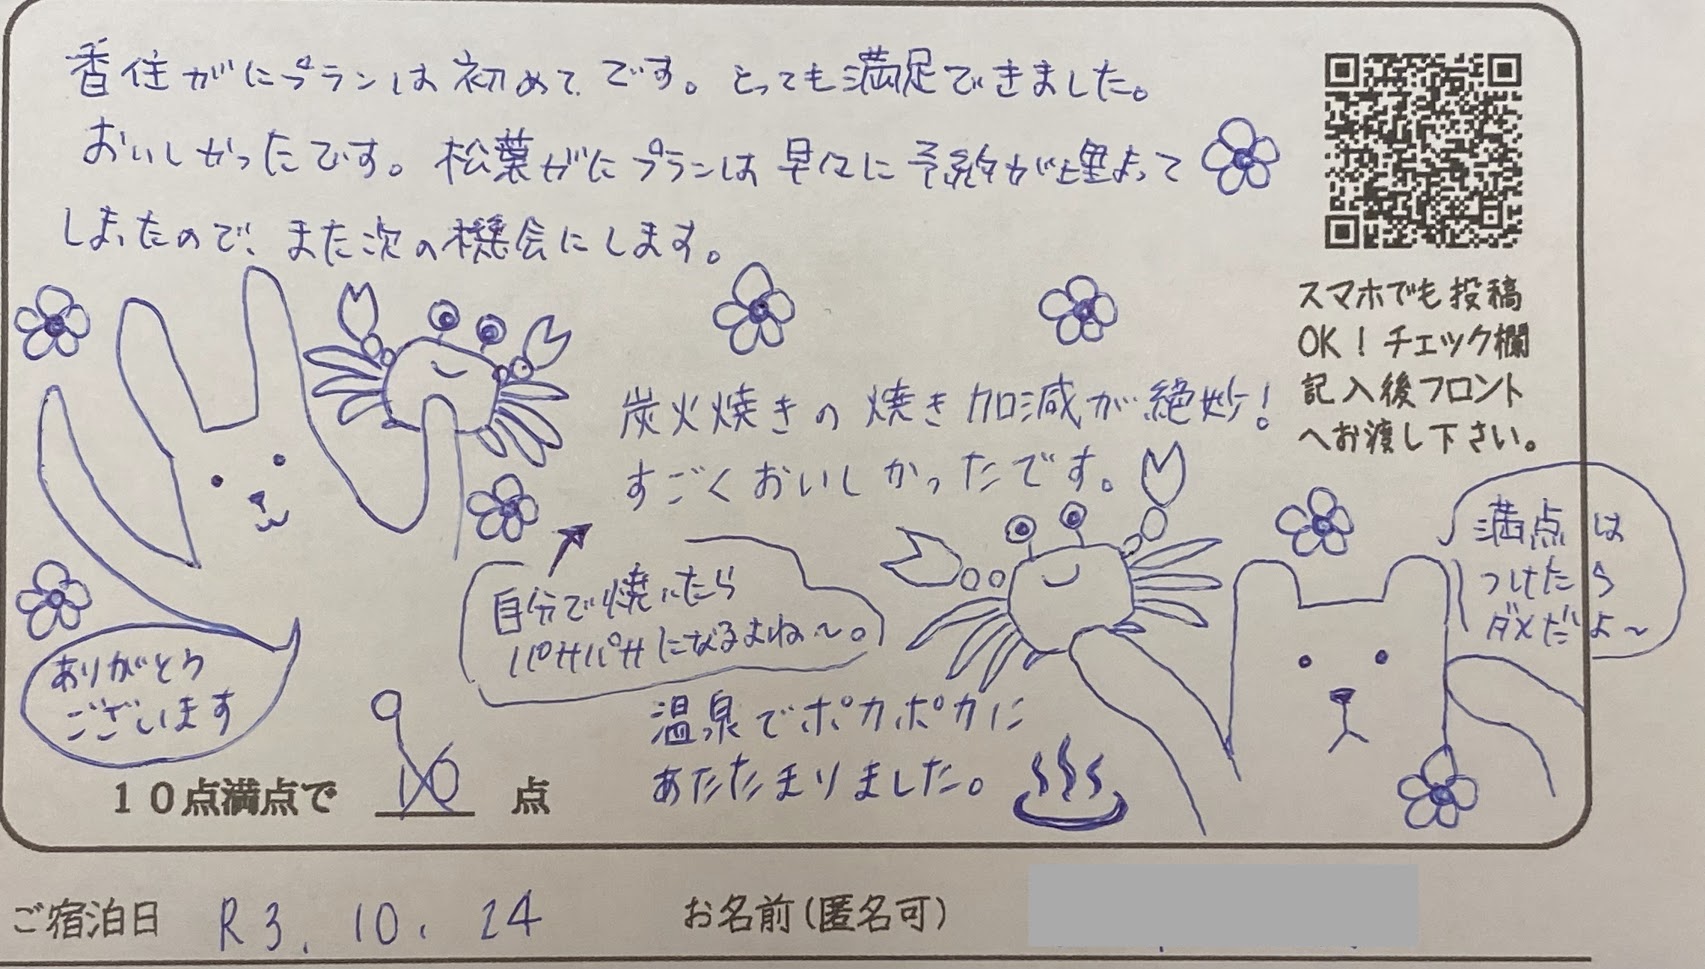 香住がにプランは初めてです。とっても満足できました。
おいしかったです。松葉がにプランは早々に予約が埋まって
しまったので、また次の機会にします。
スマホでも投稿
OK！チェック欄
記入後フロント
へお渡し下さい。
炭火焼きの焼き加減が絶妙！
すごくおいしかったです。
自分で焼いたら
パサパサになるよね〜。
満点は
つけたら
ダメだよ〜
ありがとう
ございます
温泉でポカポカに
あたたまりました。
9
10点満点で 10 点
ご宿泊日 R3. 10. 24 お名前（匿名可）